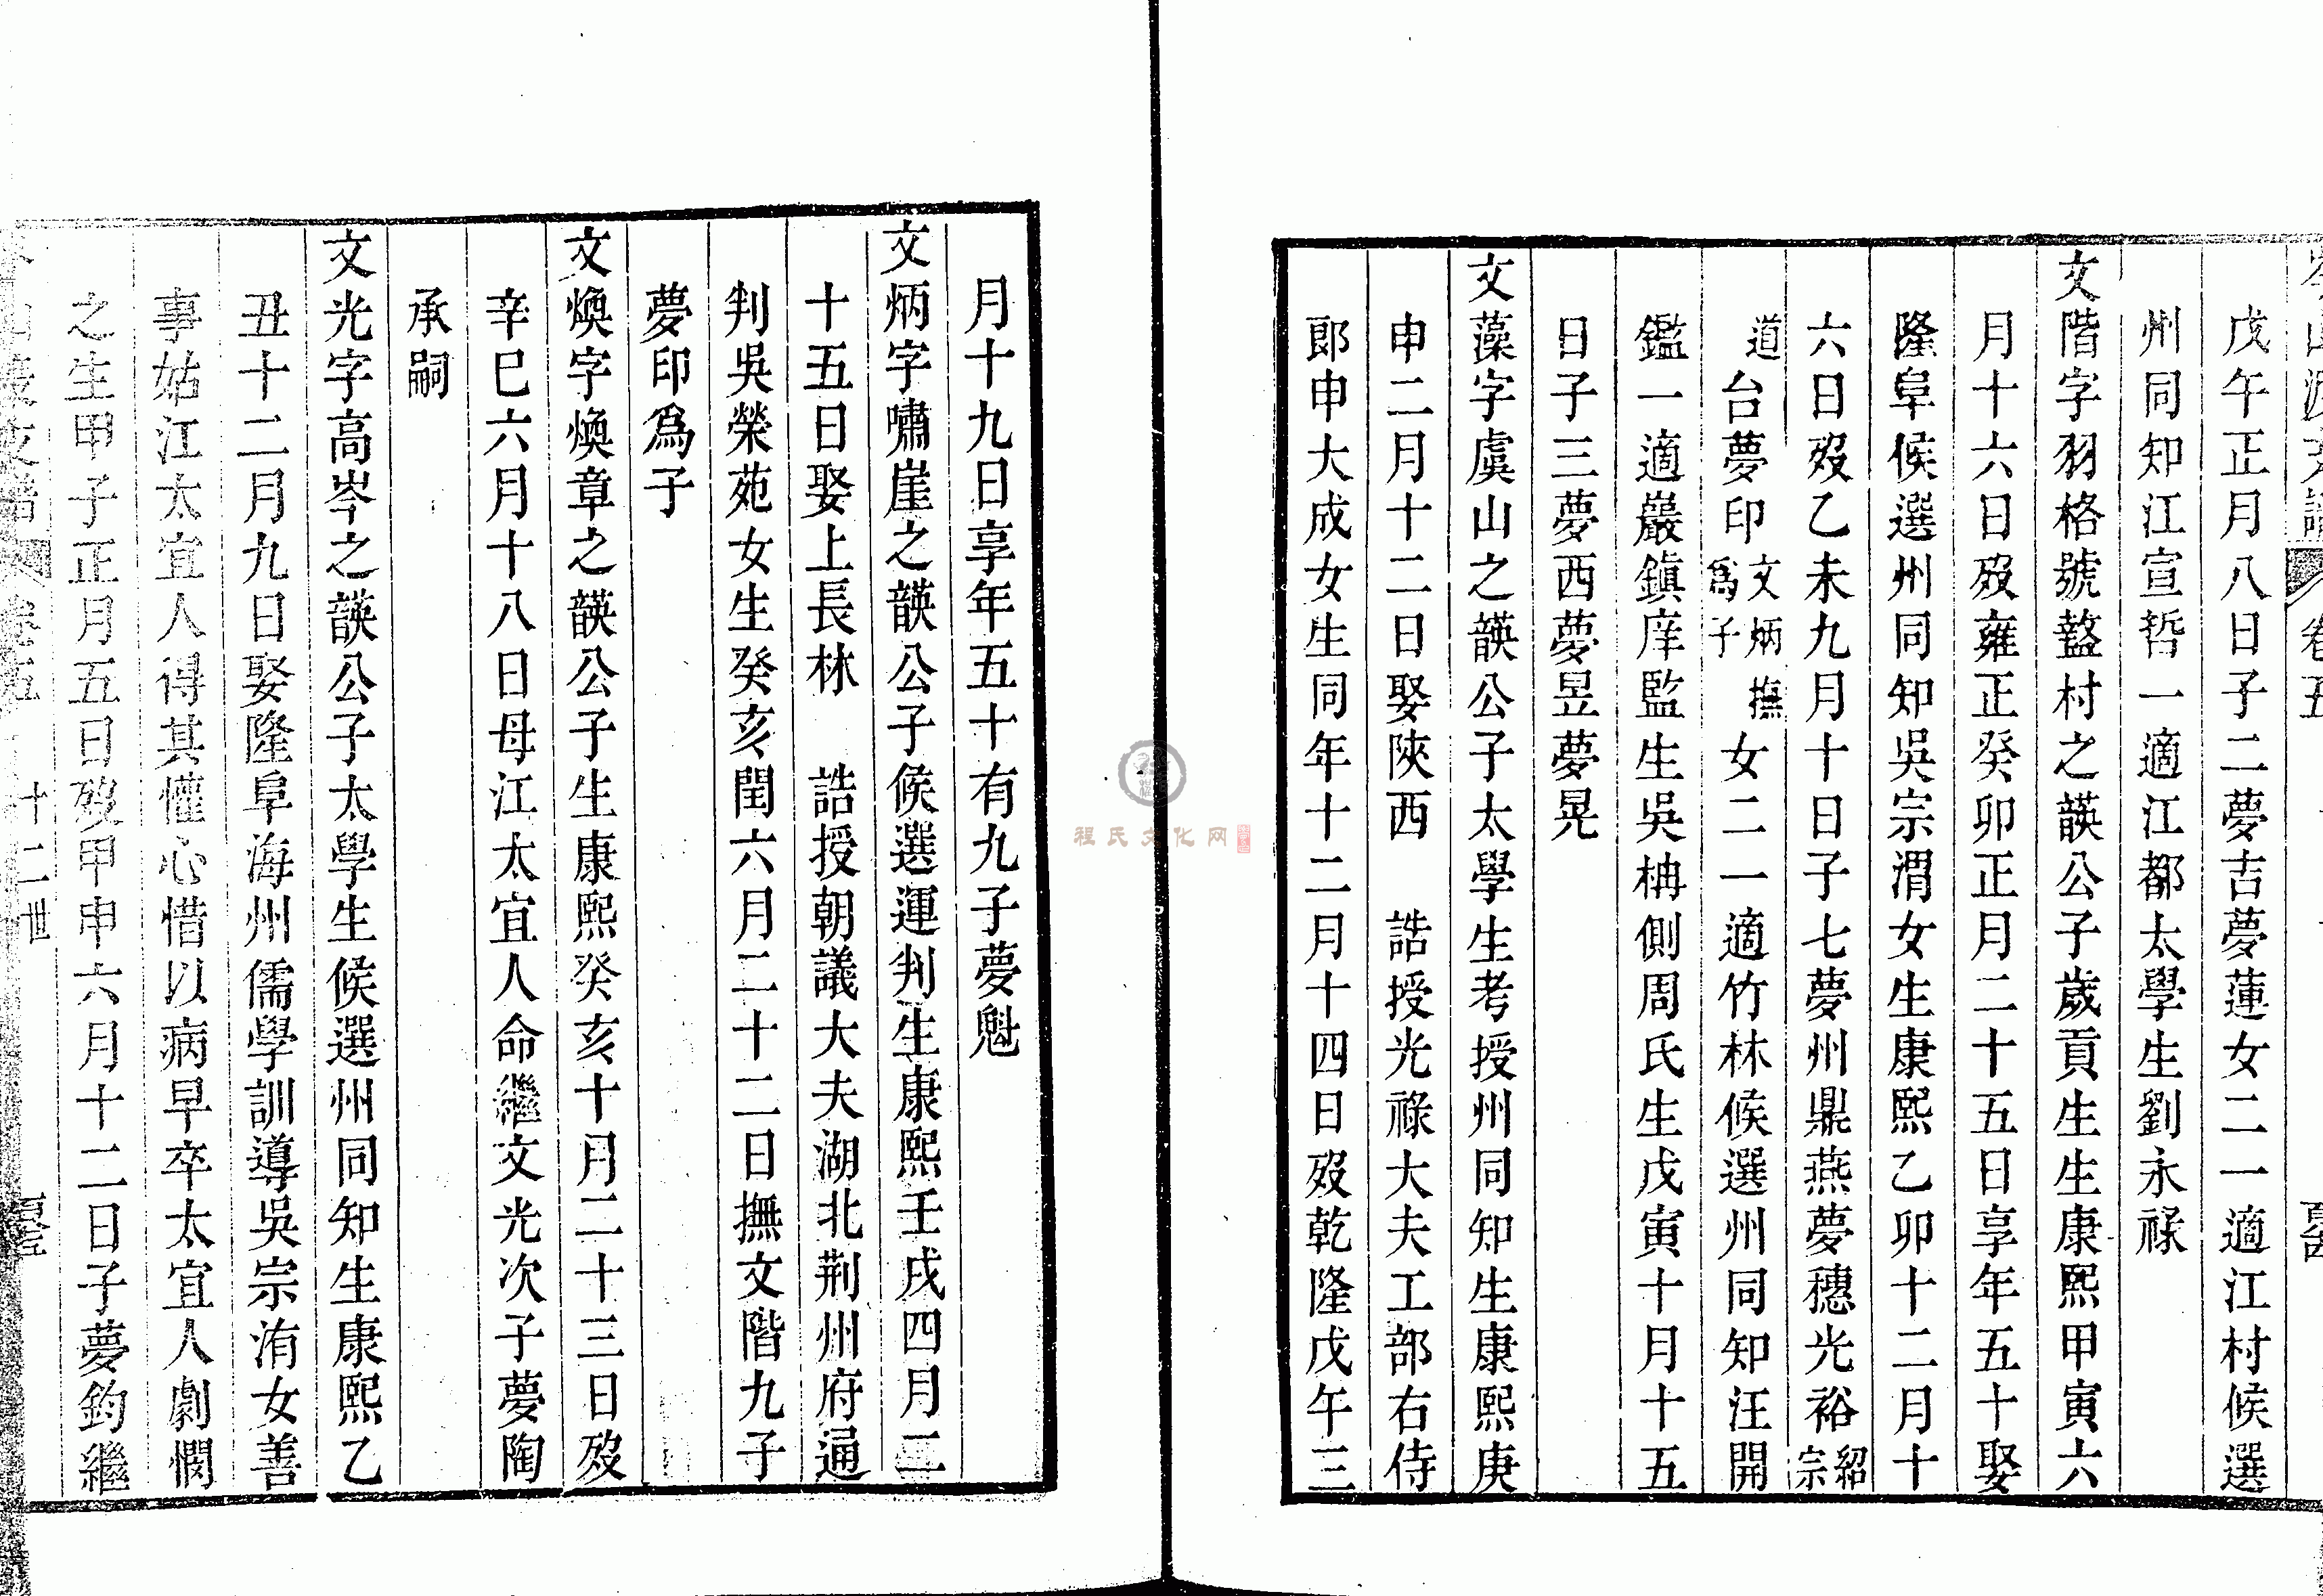 戊午正月八日子二夢吉夢蓮女二一適江村候選
州同知江宣晢一適江都太學生劉永祿
文階字羽格號盩村之韺公子歲貢生生康熙甲寅六
月十六日歿雍正癸卯正月二十五日享年五十娶
隆阜候選州同知吳宗渭女生康熙乙卯十二月十
六日歿乙未九月十日子七夢州鼎燕夢穗光裕紹宗
道台夢印文炳撫爲子女二一適竹林候選州同知汪開
鑑一適巖鎮庠監生吳柟側周氏生戊寅十月十五
日子三夢西夢昱夢晃
文藻字虞山之韺公子太學生考授州同知生康熙庚
申二月十二日娶陝西 誥授光祿大夫工部右侍
郎申大成女生同年十二月十四日歿乾隆戊午三
月十九日享年五十有九子夢魁
文炳字嘯崖之韺公子候選運判生康熙壬戌四月二
十五日娶上長林 誥授朝議大夫湖北荆州府通
判吳榮苑女生癸亥閏六月二十二日撫文階九子
夢印爲子
文煥字煥章之韺公子生康熙癸亥十月二十三日歿
辛巳六月十八日母江太宜人命繼文光次子夢陶
承嗣
文光字高岑之韺公子太學生候選州同知生康熙乙
丑十二月九日娶隆阜海州儒學訓導吳宗洧女善
事姑江太宜人得其懽心惜以病早卒太宜人劇憫
之生甲子正月五日歿甲申六月十二日子夢鈞繼
卷五 十二世
程氏文化网